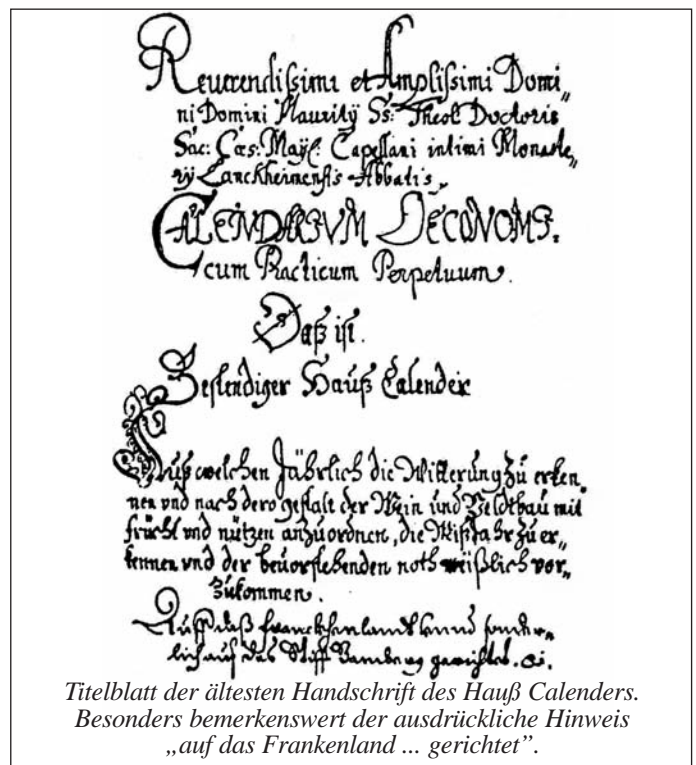 Reverendissimi et Amplissimi Domi„
ni Domini Mauritÿ Ss: Theol Doctoris
Sac: Cæs: Maÿ: Capellani intimi Monaste„
rÿ Lanckheimensis Abbatis„
CALENDARIVM OECONOMI„
cum Practicum Perpetuum.
Daß ist.
Bestendiger Hauß Calender
Auß welchen Jährlich die Witterung zu erken„
nen vnd nach dero gestalt der Wein und Veldtbau mit
frücht vnd nützen anzuordnen, die Mißjahr zu er„
kennen vnd der beuorstehenden noth weißlich vor„
zukommen.
Auff daß Franckhenlandt vnnd sonder„
lich auf das Stifft Bamberg gerichtet.
Titelblatt der ältesten Handschrift des Hauß Calenders.
Besonders bemerkenswert der ausdrückliche Hinweis
„auf das Frankenland ... gerichtet”.